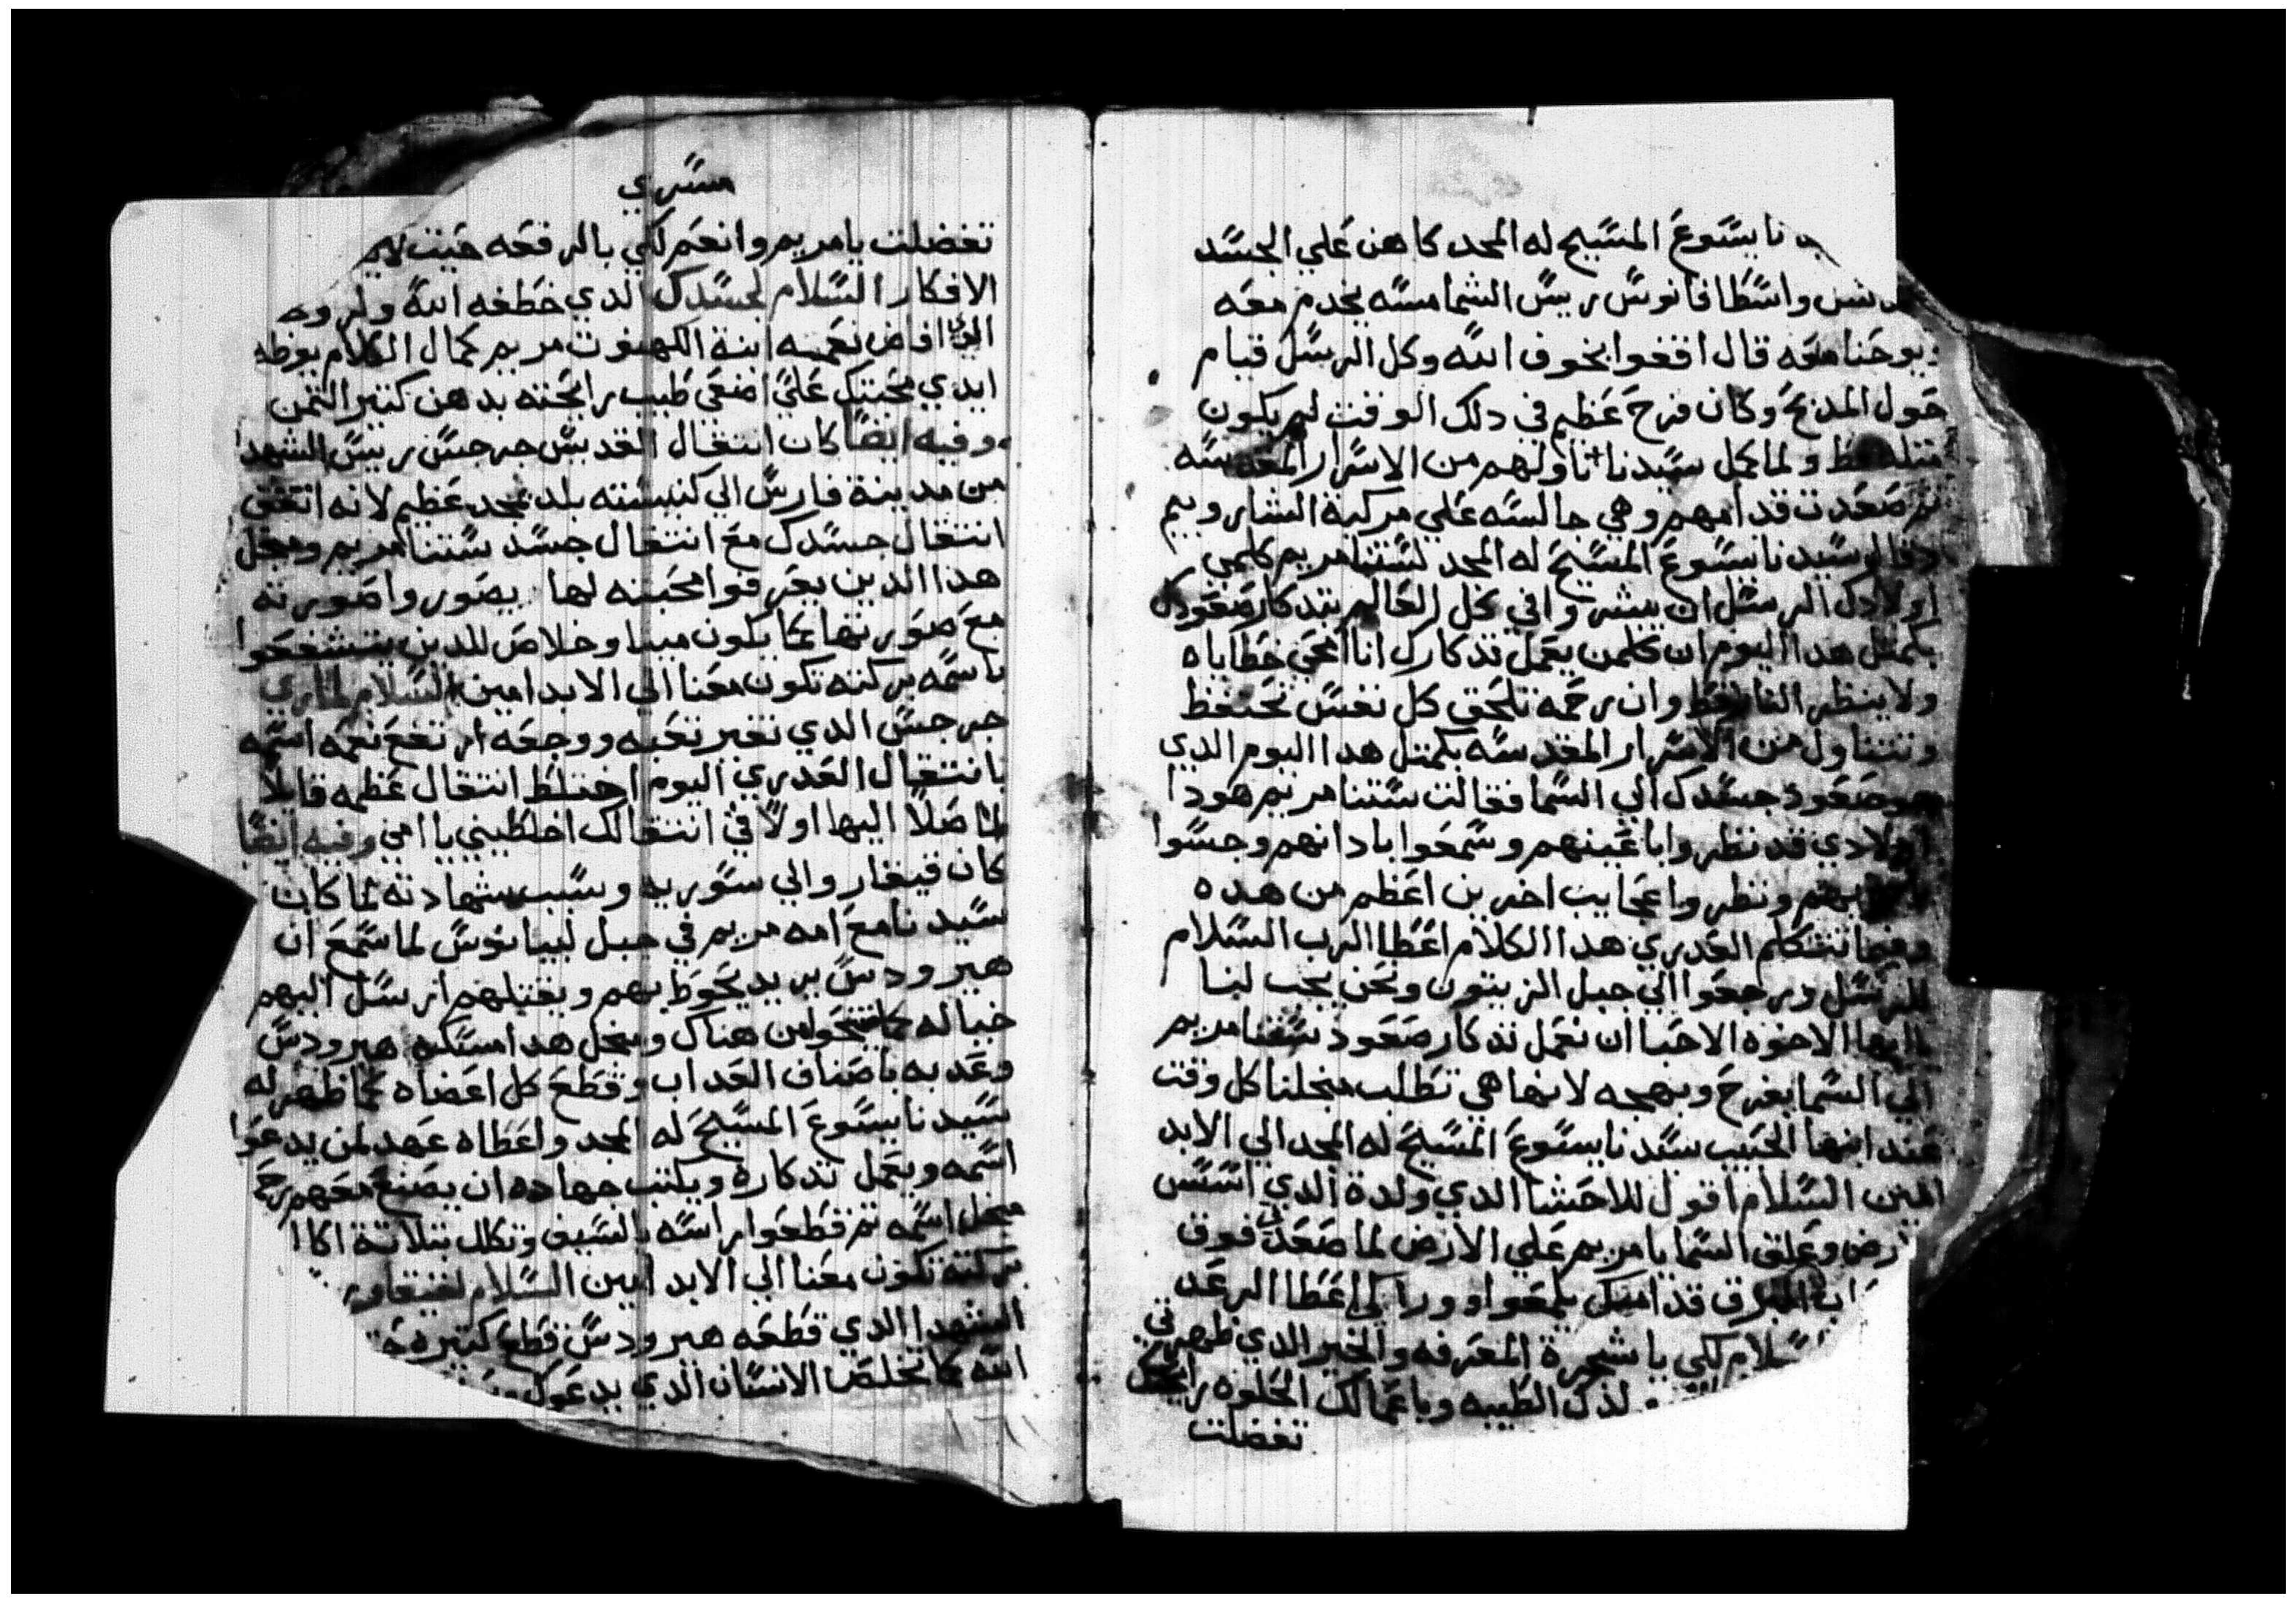 نا يسوع المسيح له المجد كاهن علي الجسد
واسطافانوس ريس الشمامسه يخدم معه
ويوحنا معه قال اقفوا بخوف الله وكل الرسل قيام
حول المدبح وكان فرح عظيم في دلك الوقت لم يكون
مثله قط ولما كمل سيدنا ناولهم من الاسرار المقدسه
تم صعدت قدامهم وهي جالسه علي مركبة الشاروبيم
وقال سيدنا يسوع المسيح له المجد لستنا مريم كلمي
اولادك الرسل ان يبشروا في كل العالم بتدكار صعودك
بكمتل هدا اليوم ان كلمن يعمل تدكارك انا امحي خطاياه
ولا ينظر النار قط وان رحمه تلحق كل نفس تحتفظ
وتتناول من الاسرار المقدسه بكمتل هدا اليوم الدي
هو صعود جسدك الي السما فقالت ستنا مريم هودا
اولادي قد نظروا باعينهم وسمعوا بادانهم وجسوا
بايديهم ونظروا عجايب اخرين اعظم من هده
وفيما تتكلم العدري هدا الكلام اعطا الرب السلام
للرسل ورجعوا الي جبل الزيتون ونحن يجب لنا
يا ايها الاخوه الاحبا ان نعمل تدكار صعود ستنا مريم
الي السما بفرح وبهجه لانها هي تطلب منجلنا كل وقت
عند ابنها الحبيب سيدنا يسوع المسيح له المجد الي الابد
امين السلام اقول للاحشا الدي ولدة الدي اسس
الارض وعلق السما يا مريم علي الارض لما صعدتي فوق
البرق قدامك يلمعوا وورا كي اعطا الرعد
السلام لكي يا شجرة المعرفه والخير الدي ظهر في
الطيبه وباعمالك الحلوه رايحتك
تفضلت
مسري
تفضلت يا مريم وانعم لكي بالرفعه حيت لم
الافكار السلام لجسدك الدي خطفه الله ولروحه
الدي افاض نعمينه ابنة الكهنوت مريم كمال الكلام
ايدي محبتك علي اضفي طيب رايحته بدهن كتير التمن
وفيه ايضا كان انتقال القديس جرجس ريس الشهدا
من مدينة فارس الي كنيسته بلد بمجد عظيم لانه اتفق
انتقال جسدك مع انتقال جسد ستنا مريم ومنجل
هدا الدين يعرفوا محبته لها يصوروا صورته
مع صورتها كما يكون مينا وخلاص للدين يتشفعوا
باسمه بركته تكون معنا الي الابد امين السلام لماري
جرجس الدي تغير تعبه ووجعه ارتفع نعمه اسمه
بانتقال العدري اليوم اختلط انتقال عظمه قايلا
لما صلا اليها اولا في انتقالك اخلطيني يا امي وفيه ايضا
كان فيقار والي سوريه وسبب شهادته لما كان
سيدنا مع امه مريم في جبل ليبانوس لما سمع ان
هيرودس يريد يحوط بهم ويقتلهم ارسل اليهم
خياله كما من هناك ومنجل هدا امسكه هيرودس
وعدبه باصناف العداب وقطع كل اعضاه كما ظهر له
سيدنا يسوع المسيح له المجد واعطاه عهد لمن يدعوا
اسمه ويعمل تدكارة ويكتب جهاده ان يصنع معهم رحمه
منجل اسمه تم قطعوا راسه بالسيف وتكلل بتلاتة اكا
بركته تكون معنا الي الابد امين السلام لفيقار
الشهدا الدي قطعه هيرودس قطع كتيره
الله كما تخلص الانسان الدي يدعوك